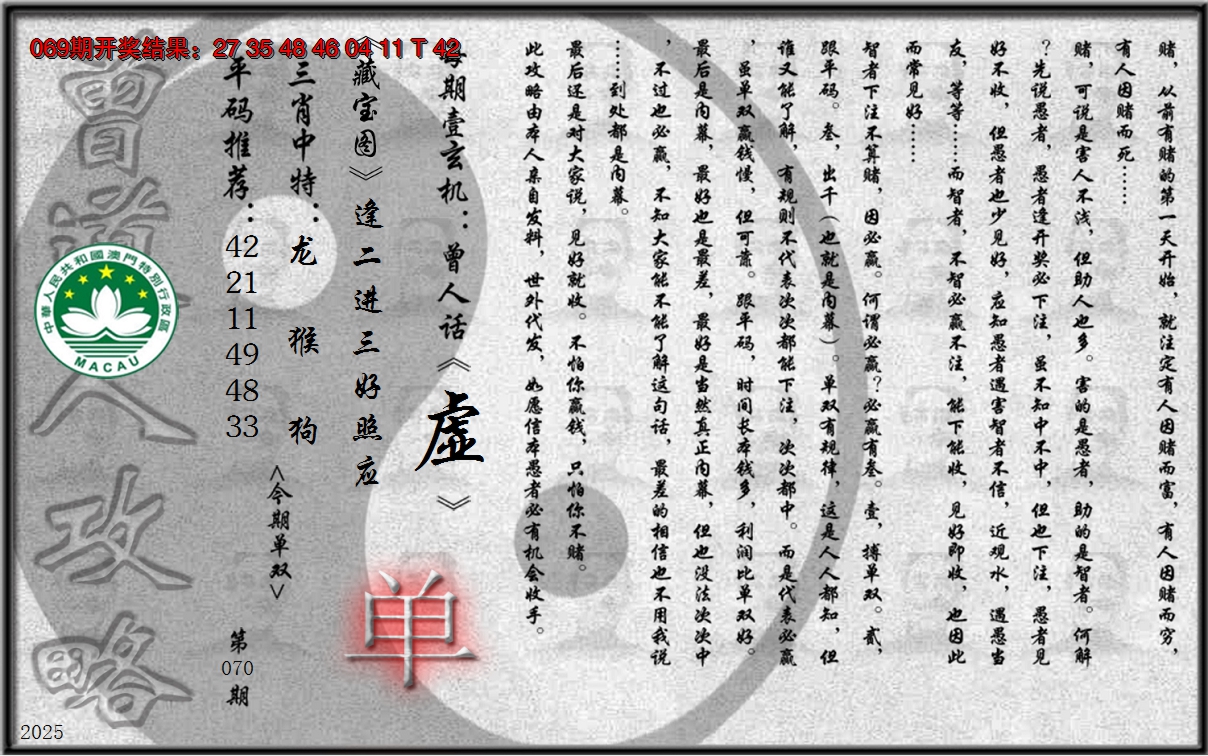 069期开奖结果：27 35 48 46 04 11 T 42
赌，从前有赌的第一天开始，就注定有人因赌而富，有人因赌而穷，
有人因赌而死……
赌，可说是害人不浅，但助人也多。害的是愚者，助的是智者。何解
？先说愚者，愚者逢开奖必下注，虽不知中不中，但也下注，愚者见
好不收，但愚者也少见好，应知愚者遇害智者不信，近观水，遇愚当
友，等等……而智者，不智必赢不注，能下能收，见好即收，也因此
而常见好……
智者下注不算赌，因必赢。何谓必赢？必赢有叁。壹，搏单双。贰，
跟平码。叁，出千（也就是内幕）。单双有规律，这是人人都知，但
谁又能了解，有规则不代表次次都能下注，次次都中。而是代表必赢
，虽单双赢钱慢，但可靠。跟平码，时间长本钱多，利润比单双好。
最后是内幕，最好也是最差，最好是当然真正内幕，但也没法次次中
，不过也必赢，不知大家能不能了解这句话，最差的相信也不用我说
……到处都是内幕。
最后还是对大家说，见好就收。不怕你赢钱，只怕你不赌。
此攻略由本人亲自发料，世外代发，如愿信本愚者必有机会收手。
每期壹玄机：曾人话《虚》
《藏宝图》逢二进三好照应
三肖中特：龙 猴 狗
平码推荐：42 21 11 49 48 33
<今期单双>
单
第070期
曾道人攻略
中華人民共和國澳門特別行政區
MACAU
2025